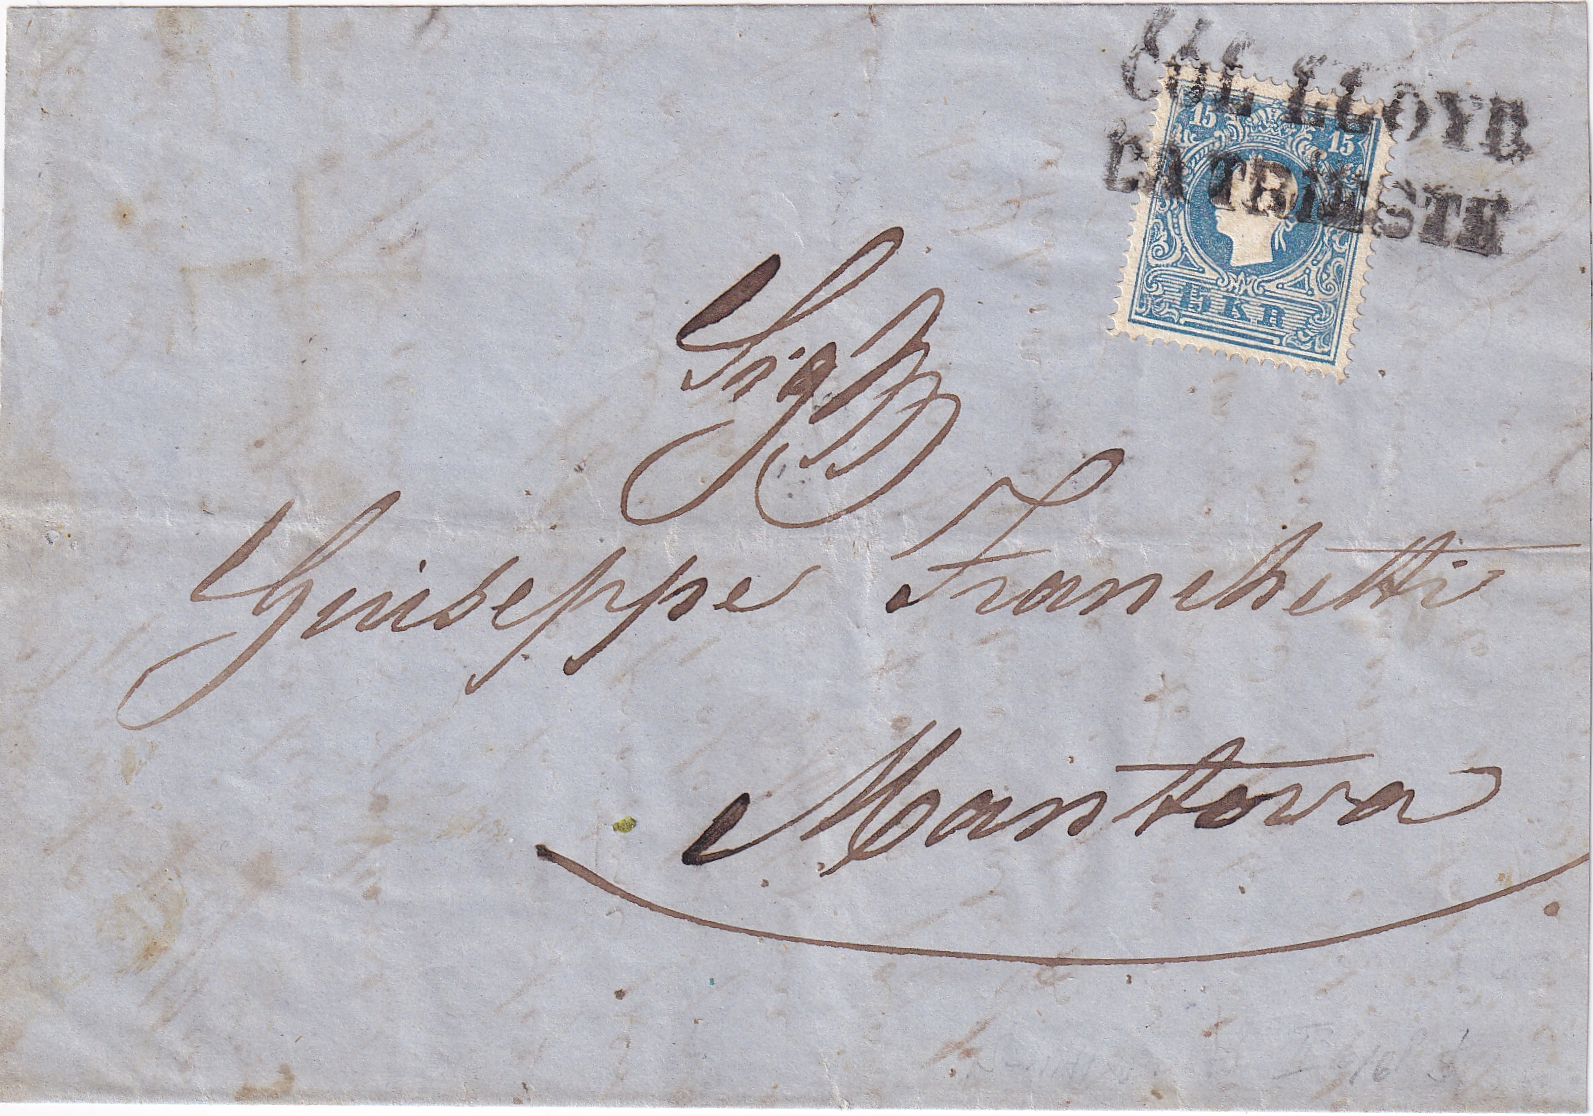 COL LLOYD
DA TRIESTE
15 15
15 KR
Sig.r
Giuseppe Franchetti
Mantova